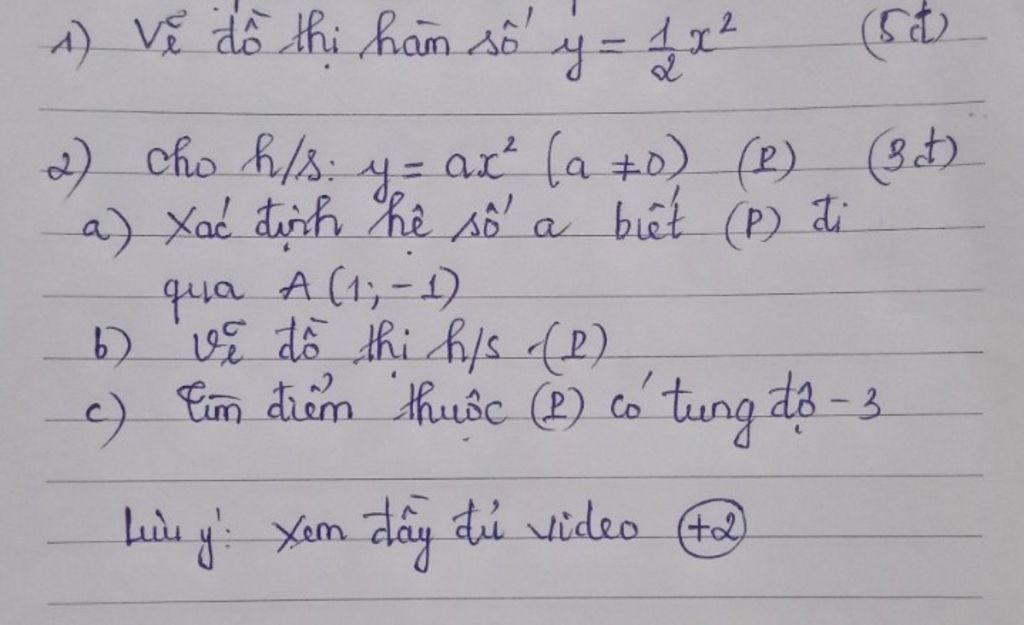 1) Vẽ đồ thị hàm số y = 1/2 x² (5đ)
2) Cho h/s: y = ax² (a ≠ 0) (P) (3đ)
a) Xác định hệ số a biết (P) đi
qua A (1; -1)
b) Vẽ đồ thị h/s (P)
c) Tìm điểm thuộc (P) có tung độ - 3
Lưu ý: Xem đầy đủ video +2